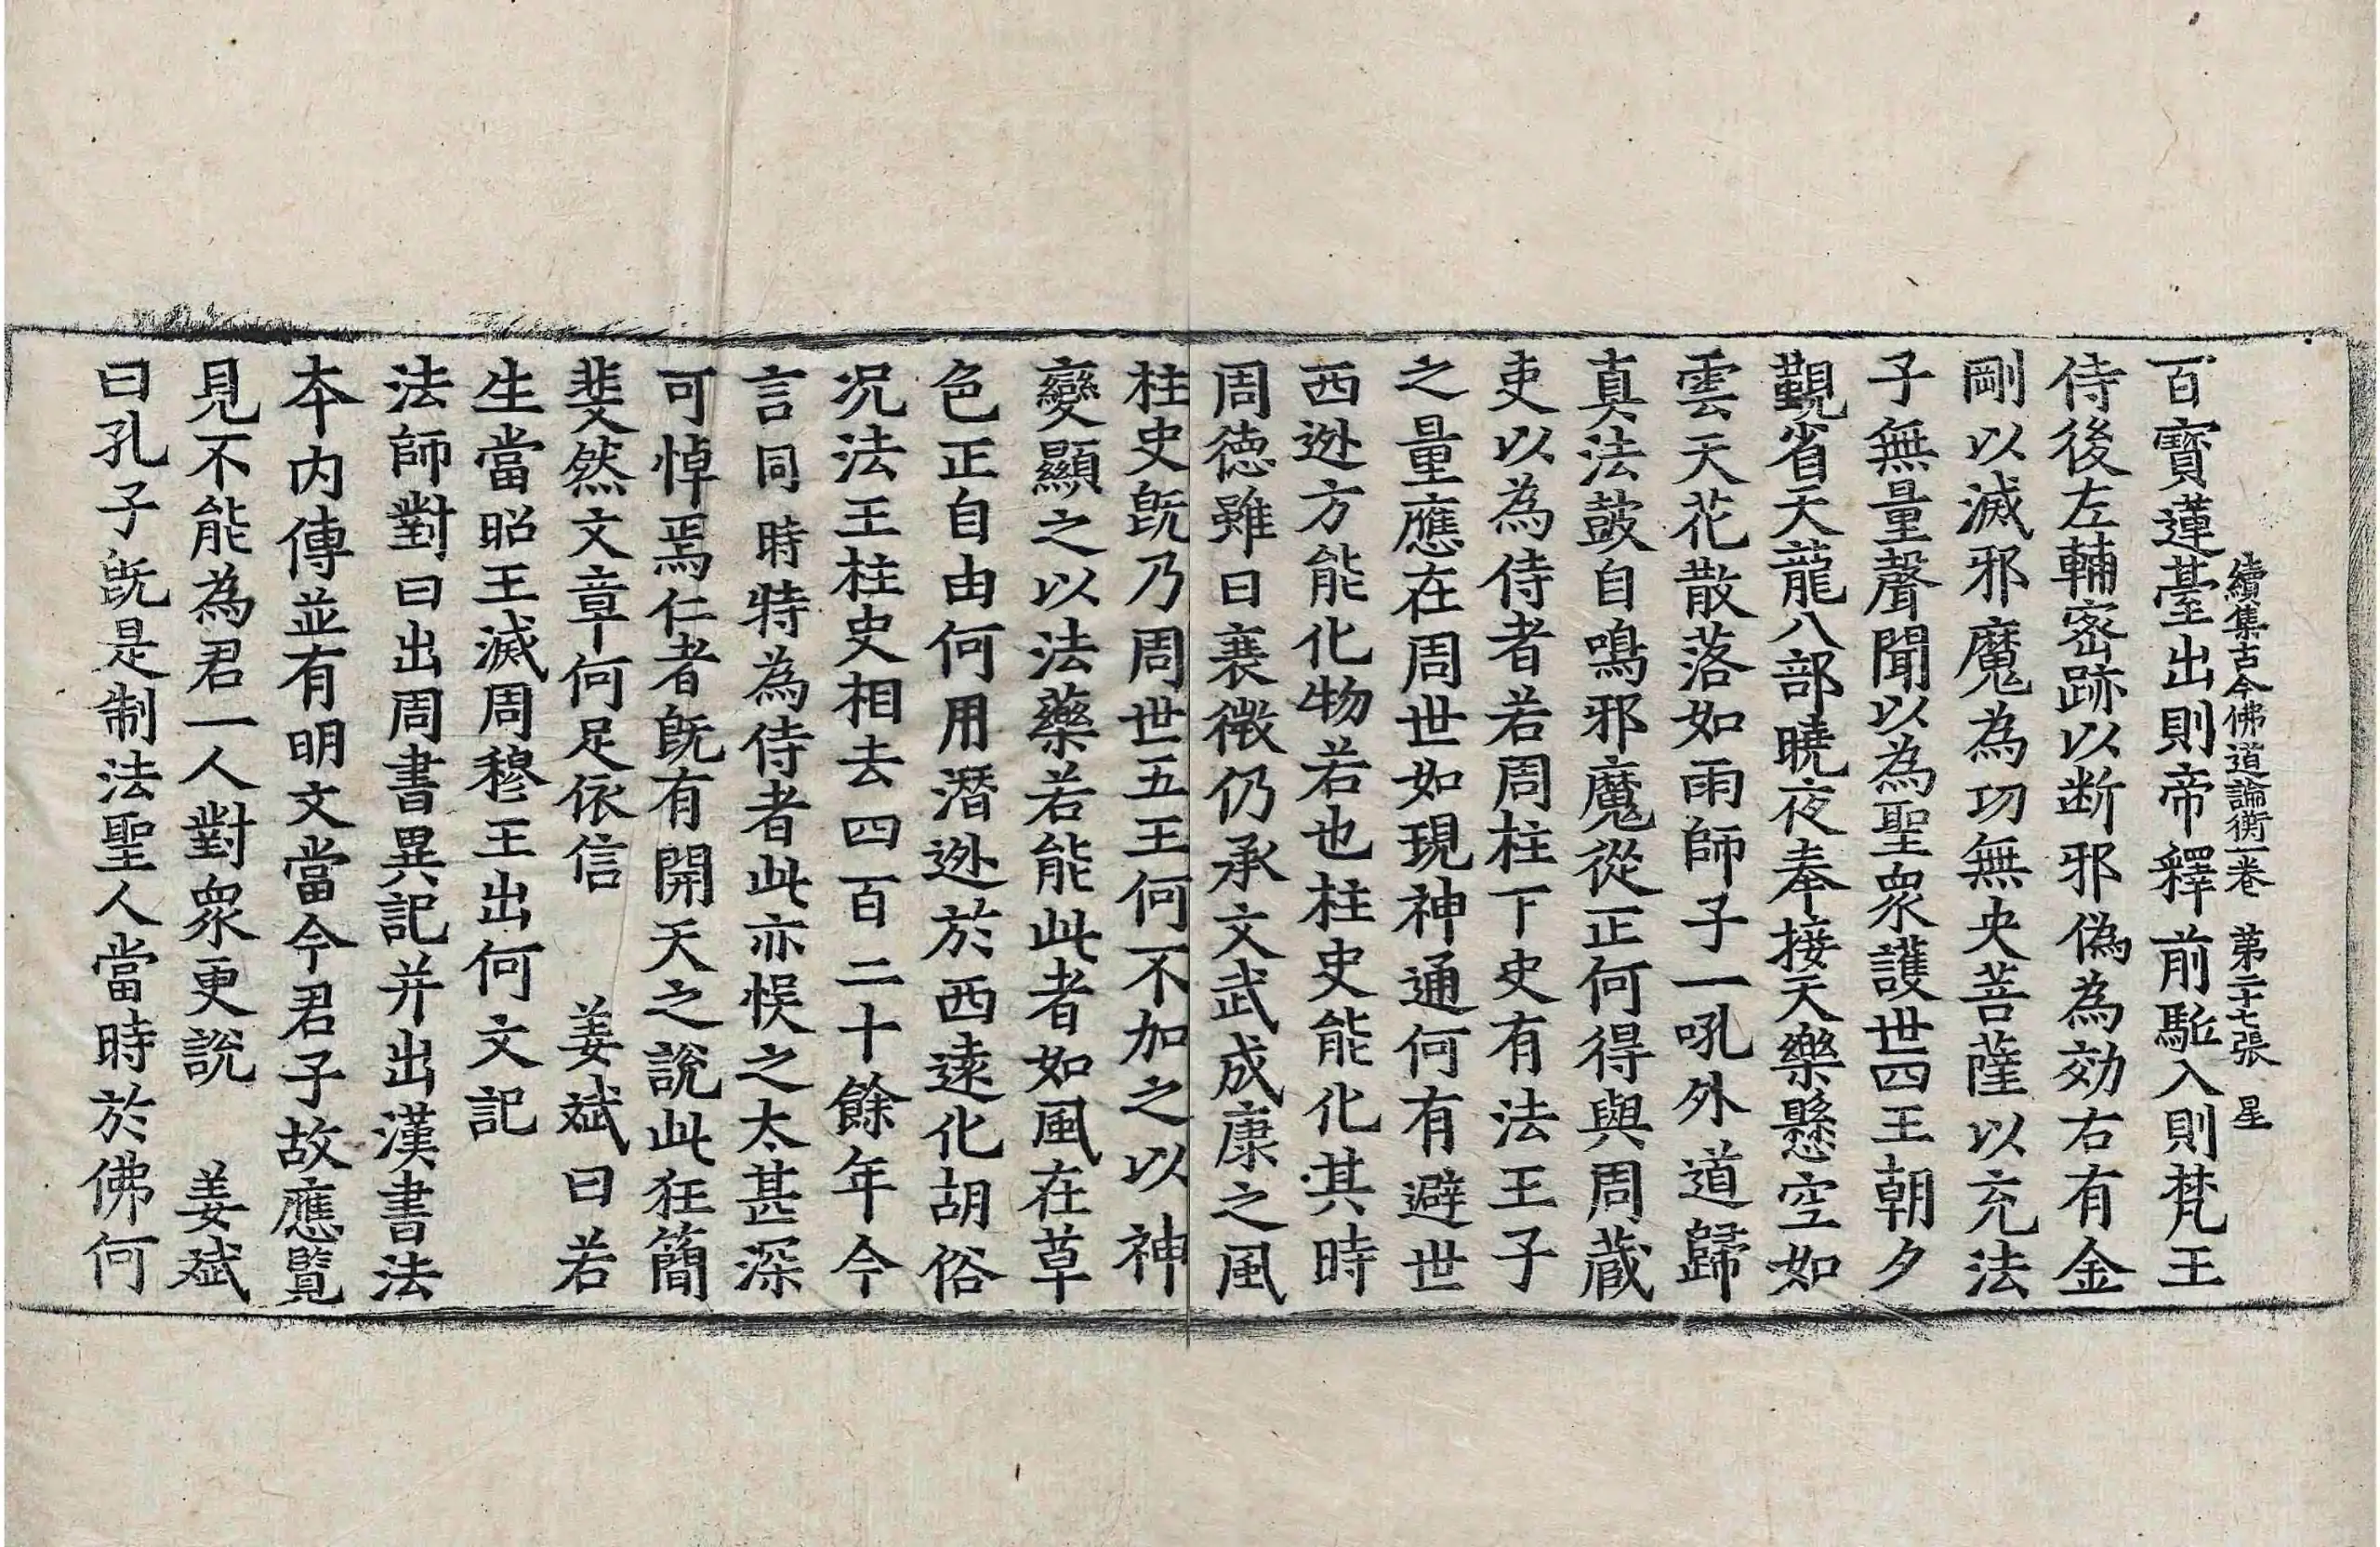 續集古今佛道論衡一卷 第二十七張 星
百寶蓮臺出則帝釋前駈入則梵王
侍後左輔密跡以断邪偽為効右有金
剛以滅邪魔為功無央菩薩以充法
子無量聲聞以為聖衆護世四王朝夕
覲省天龍八部曉夜奉接天樂懸空如
雲天花散落如雨師子一吼外道歸
真法鼓自鳴邪魔從正何得與周蔵
吏以為侍者若周柱下史有法王子
之量應在周世如現神通何有避世
西逊方能化物若也柱史能化其時
周徳雖曰衰微仍承文武成康之風
柱史旣乃周世五王何不加之以神
變顯之以法藥若能此者如風在草
色正自由何用潛逊於西逺化胡俗
况法王柱史相去四百二十餘年今
言同時特為侍者此亦悮之太甚深
可悼焉仁者旣有開天之說此狂簡
斐然文章何足依信 姜斌曰若
生當昭王滅周穆王出何文記
法師對曰出周書異記并出漢書法
本内傳並有明文當今君子故應覧
見不能為君一人對衆更説 姜斌
曰孔子旣是制法聖人當時於佛何